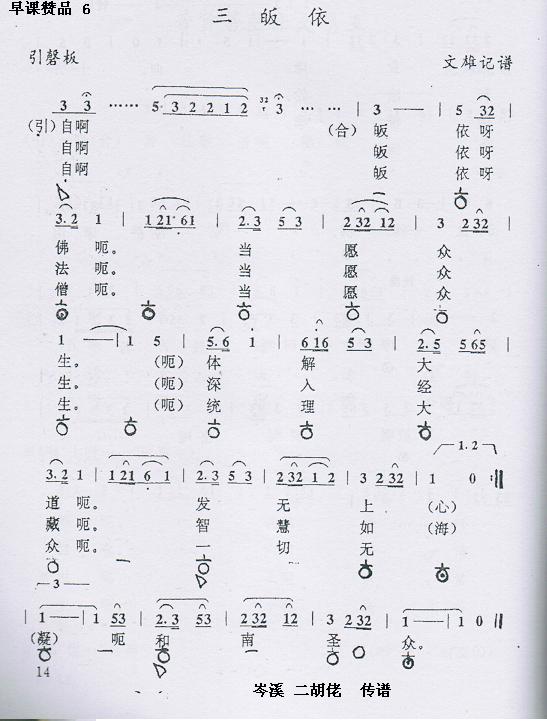 早课赞品 6
三 皈 依
引磬板
文雄记谱
3 3 …… 5 3 2 2 1 2 3 …… | 3 —— | 5 32 |
(引) 自啊 (合) 皈 依 呀
自啊 皈 依 呀
自啊 皈 依 呀
3.2 1 | 1 21· 61 | 2.3 5 3 | 2 32 12 | 3 2 32 |
佛 呃。 当 愿 众
法 呃。 当 愿 众
僧 呃。 当 愿 众
1 —— | 1 5 | 5.6 1 | 6 16 5 3 | 2.5 565 |
生。 (呃) 体 解 大
生。 (呃) 深 入 经
生。 (呃) 统 理 大
1.2
3.2 1 | 1 21 6 1 | 2.3 5 3 | 2 32 1 2 | 3 2 32 | 1 0 :||
道 呃。 发 无 上 (心)
藏 呃。 智 慧 如 (海)
众 呃。 一 切 无
3
| 1 —— | 1 53 | 2.3 53 | 2 32 12 | 3 2 32 | 1 —— | 1 0 ||
(凝) 呃 和 南 圣 众。
14
岑溪 二胡佬 传谱